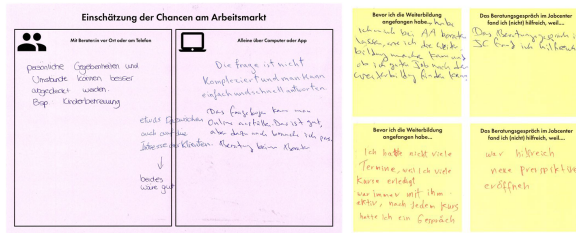 Einschätzung der Chancen am Arbeitsmarkt
Mit Berater:in vor Ort oder am Telefon
persönliche Gegebenheiten und
Umstände können besser
abgecheckt werden.
Bsp Kinderbetreuung
etwas dazwischen
auch auf die
Interesse der Klienten.
beides
wäre gut
Alleine über Computer oder App
Die frage ist nicht
Kompleziert und man kann
einfach und schnell antworten.
Das fragebogen kann man
Online ausfülle. Das ist gut,
aber dafür auch brauche ich pers.
Beratung beim
Bevor ich die Weiterbildung
angefangen habe...
habe
ich mich bei AA berate
lasse, wie ich die weite
bildung machen kann und
ob ich gute Job nach der
weiterbildung finde kann
Das Beratungsgespräch im Jobcenter
fand ich (nicht) hilfreich, weil....
Das Beratungsgespräch i
JC fand ich hilfreich
Bevor ich die Weiterbildung
angefangen habe...
Ich hatte nicht viele
Termine, weil ich viele
Kurse erledigt
war immer mit ihm
aktiv, nach Jedem Kurs
hatte ich ein Gespräch
Das Beratungsgespräch im Jobcenter
fand ich (nicht) hilfreich, weil....
war hilfreich
neue prespiktive
eröffnen